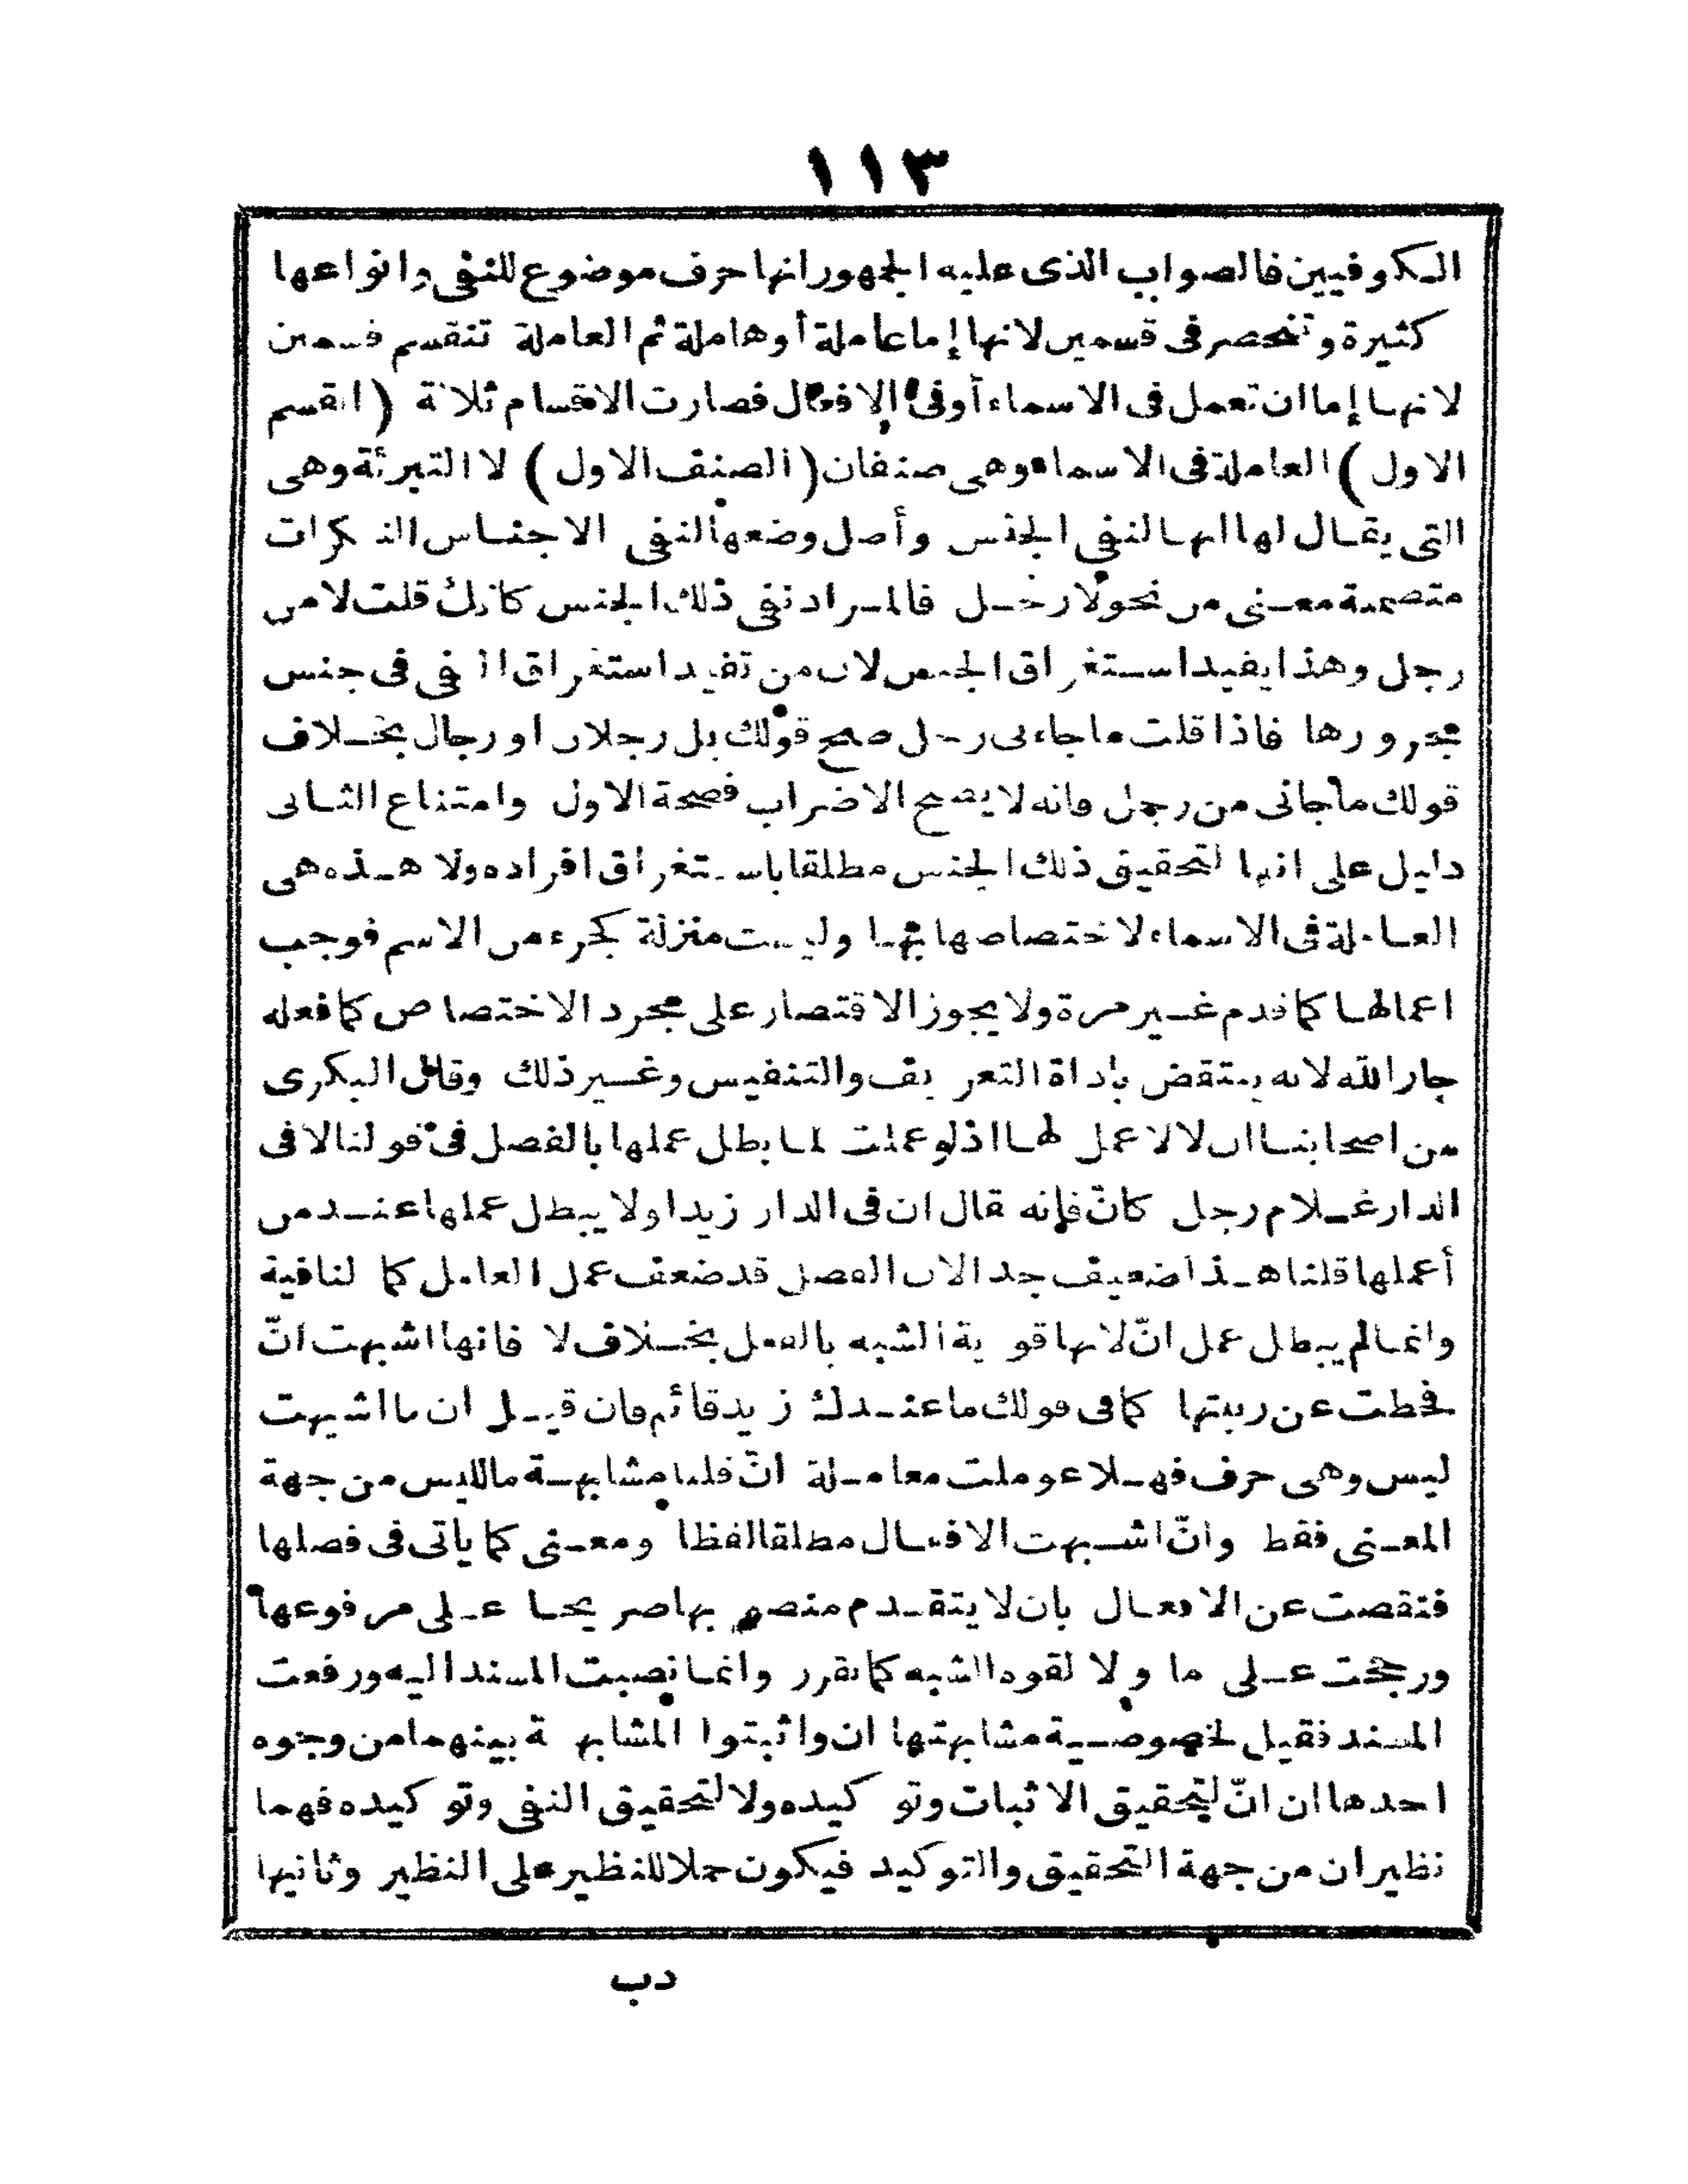 ١١٣
الكوفيين فالصواب الذى عليه الجمهور انها حرف موضوع للنفى وانواعها
كثيرة وتنحصر فى قسمين لانها إما عاملة أوهاملة ثم العاملة تنقسم قسمين
لانها إما ان تعمل فى الاسماء أوفى الافعال فصارت الاقسام ثلاثة (القسم
الاول) العاملة فى الاسماء وهى صنفان (الصنف الاول) لا التبرئة وهى
التى يقال لها انها لنفى الجنس وأصل وضعها لنفى الاجناس النكرات
متضمنة معنى من نحو لا رجل فالمراد نفى ذلك الجنس كانك قلت لا من
رجل وهذا يفيد استغراق الجنس لان من تفيد استغراق النفى فى جنس
مجرورها فاذا قلت ما جاءنى رجل صح قولك بل رجلان او رجال بخلاف
قولك ماجانى من رجل فانه لا يصح الاضراب فصحة الاول وامتناع الثانى
دليل على انها لتحقيق ذلك الجنس مطلقا باستغراق افراده ولا هذه هى
العاملة فى الاسماء لاختصاصها بها وليست منزلة كجزء من الاسم فوجب
اعمالها كما قدم غير مرة ولا يجوز الاقتصار على مجرد الاختصاص كما فعله
جار الله لانه ينتقض باداة التعريف والتنفيس وغير ذلك وقال البكرى
من اصحابنا ان لا لا عمل لها اذ لو عملت لما بطل عملها بالفصل فى قولنا لا فى
الدار غلام رجل كانّ فإنه قال ان فى الدار زيدا ولا يبطل عملها عند من
أعملها قلنا هذا ضعيف جدا لان الفصل قد ضعف عمل العامل كما لنافية
وانما لم يبطل عمل انّ لانها قوية الشبه بالفعل بخلاف لا فانها اشبهت انّ
فحطت عن رتبتها كما فى قولك ما عندك زيد قائم فان قيل ان ما اشبهت
ليس وهى حرف فهلا عوملت معاملة انّ قلنا مشابهة ما لليس من جهة
المعنى فقط وانّ اشبهت الافعال مطلقا لفظا ومعنى كما ياتى فى فصلها
فنقصت عن الافعال بان لا يتقدم منصوبها صريحا على مرفوعها
ورجحت على ما ولا لقوه الشبه كما تقرر وانما نصبت المسند اليه ورفعت
المسند فقيل لخصوصية مشابهتها ان واثبتوا المشابهة بينهما من وجوه
احدها ان انّ لتحقيق الاثبات وتوكيده ولا لتحقيق النفى وتوكيده فهما
نظيران من جهة التحقيق والتوكيد فيكون حملا للنظير على النظير وثانيها
دب